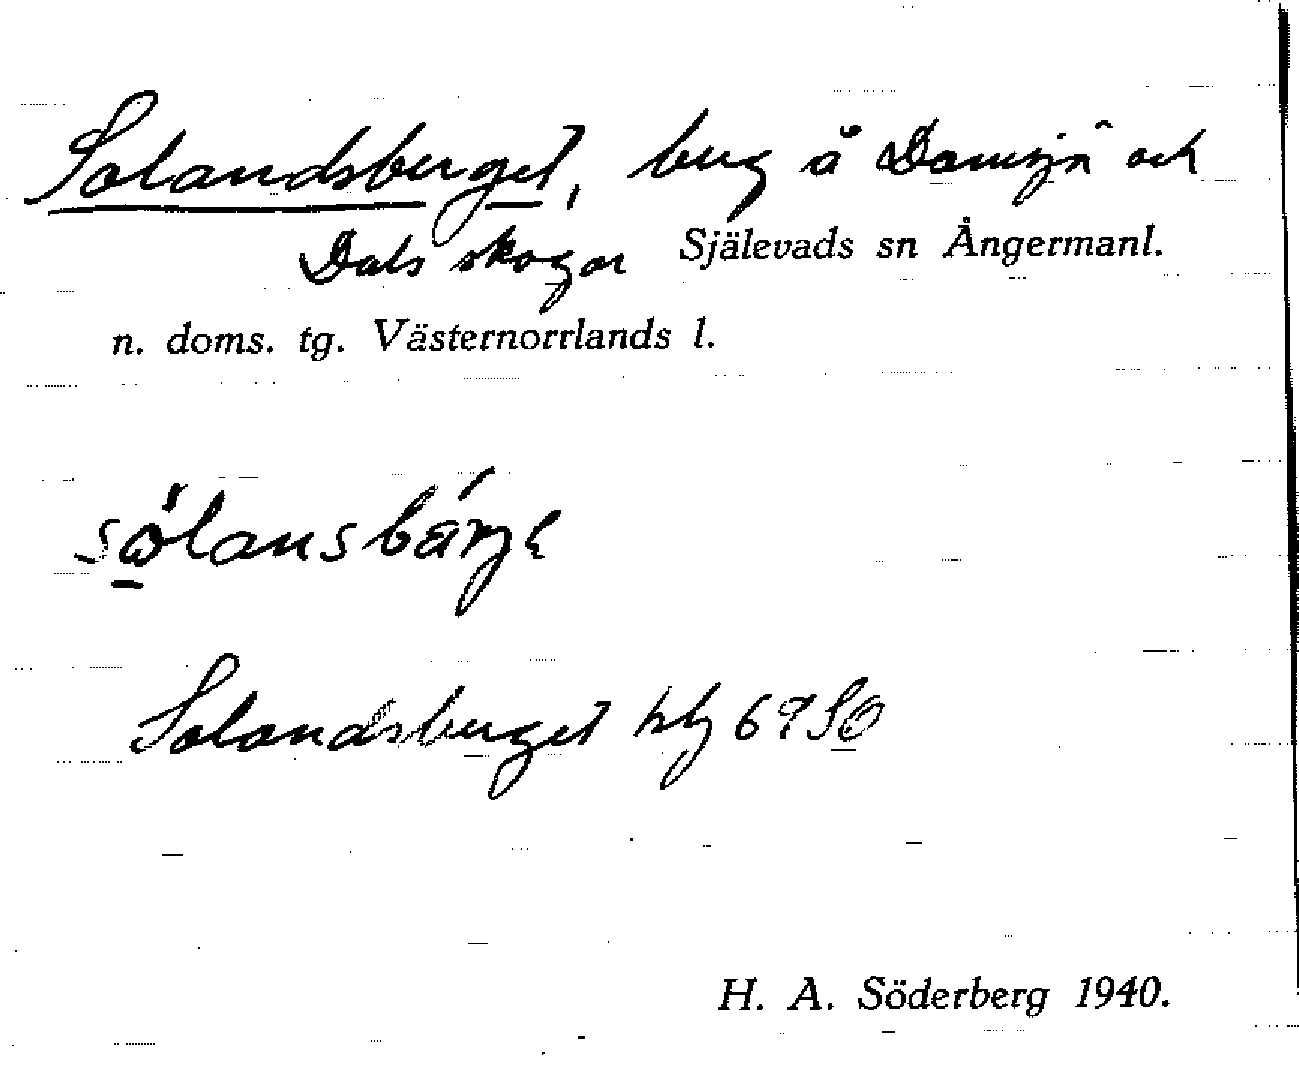 Solandsberget, berg å Domsjö och
Dals skogar Själevads sn Ångermanl.
n. doms. tg. Västernorrlands l.
Solandsberget hbl 69 SO
H. A. Söderberg 1940.